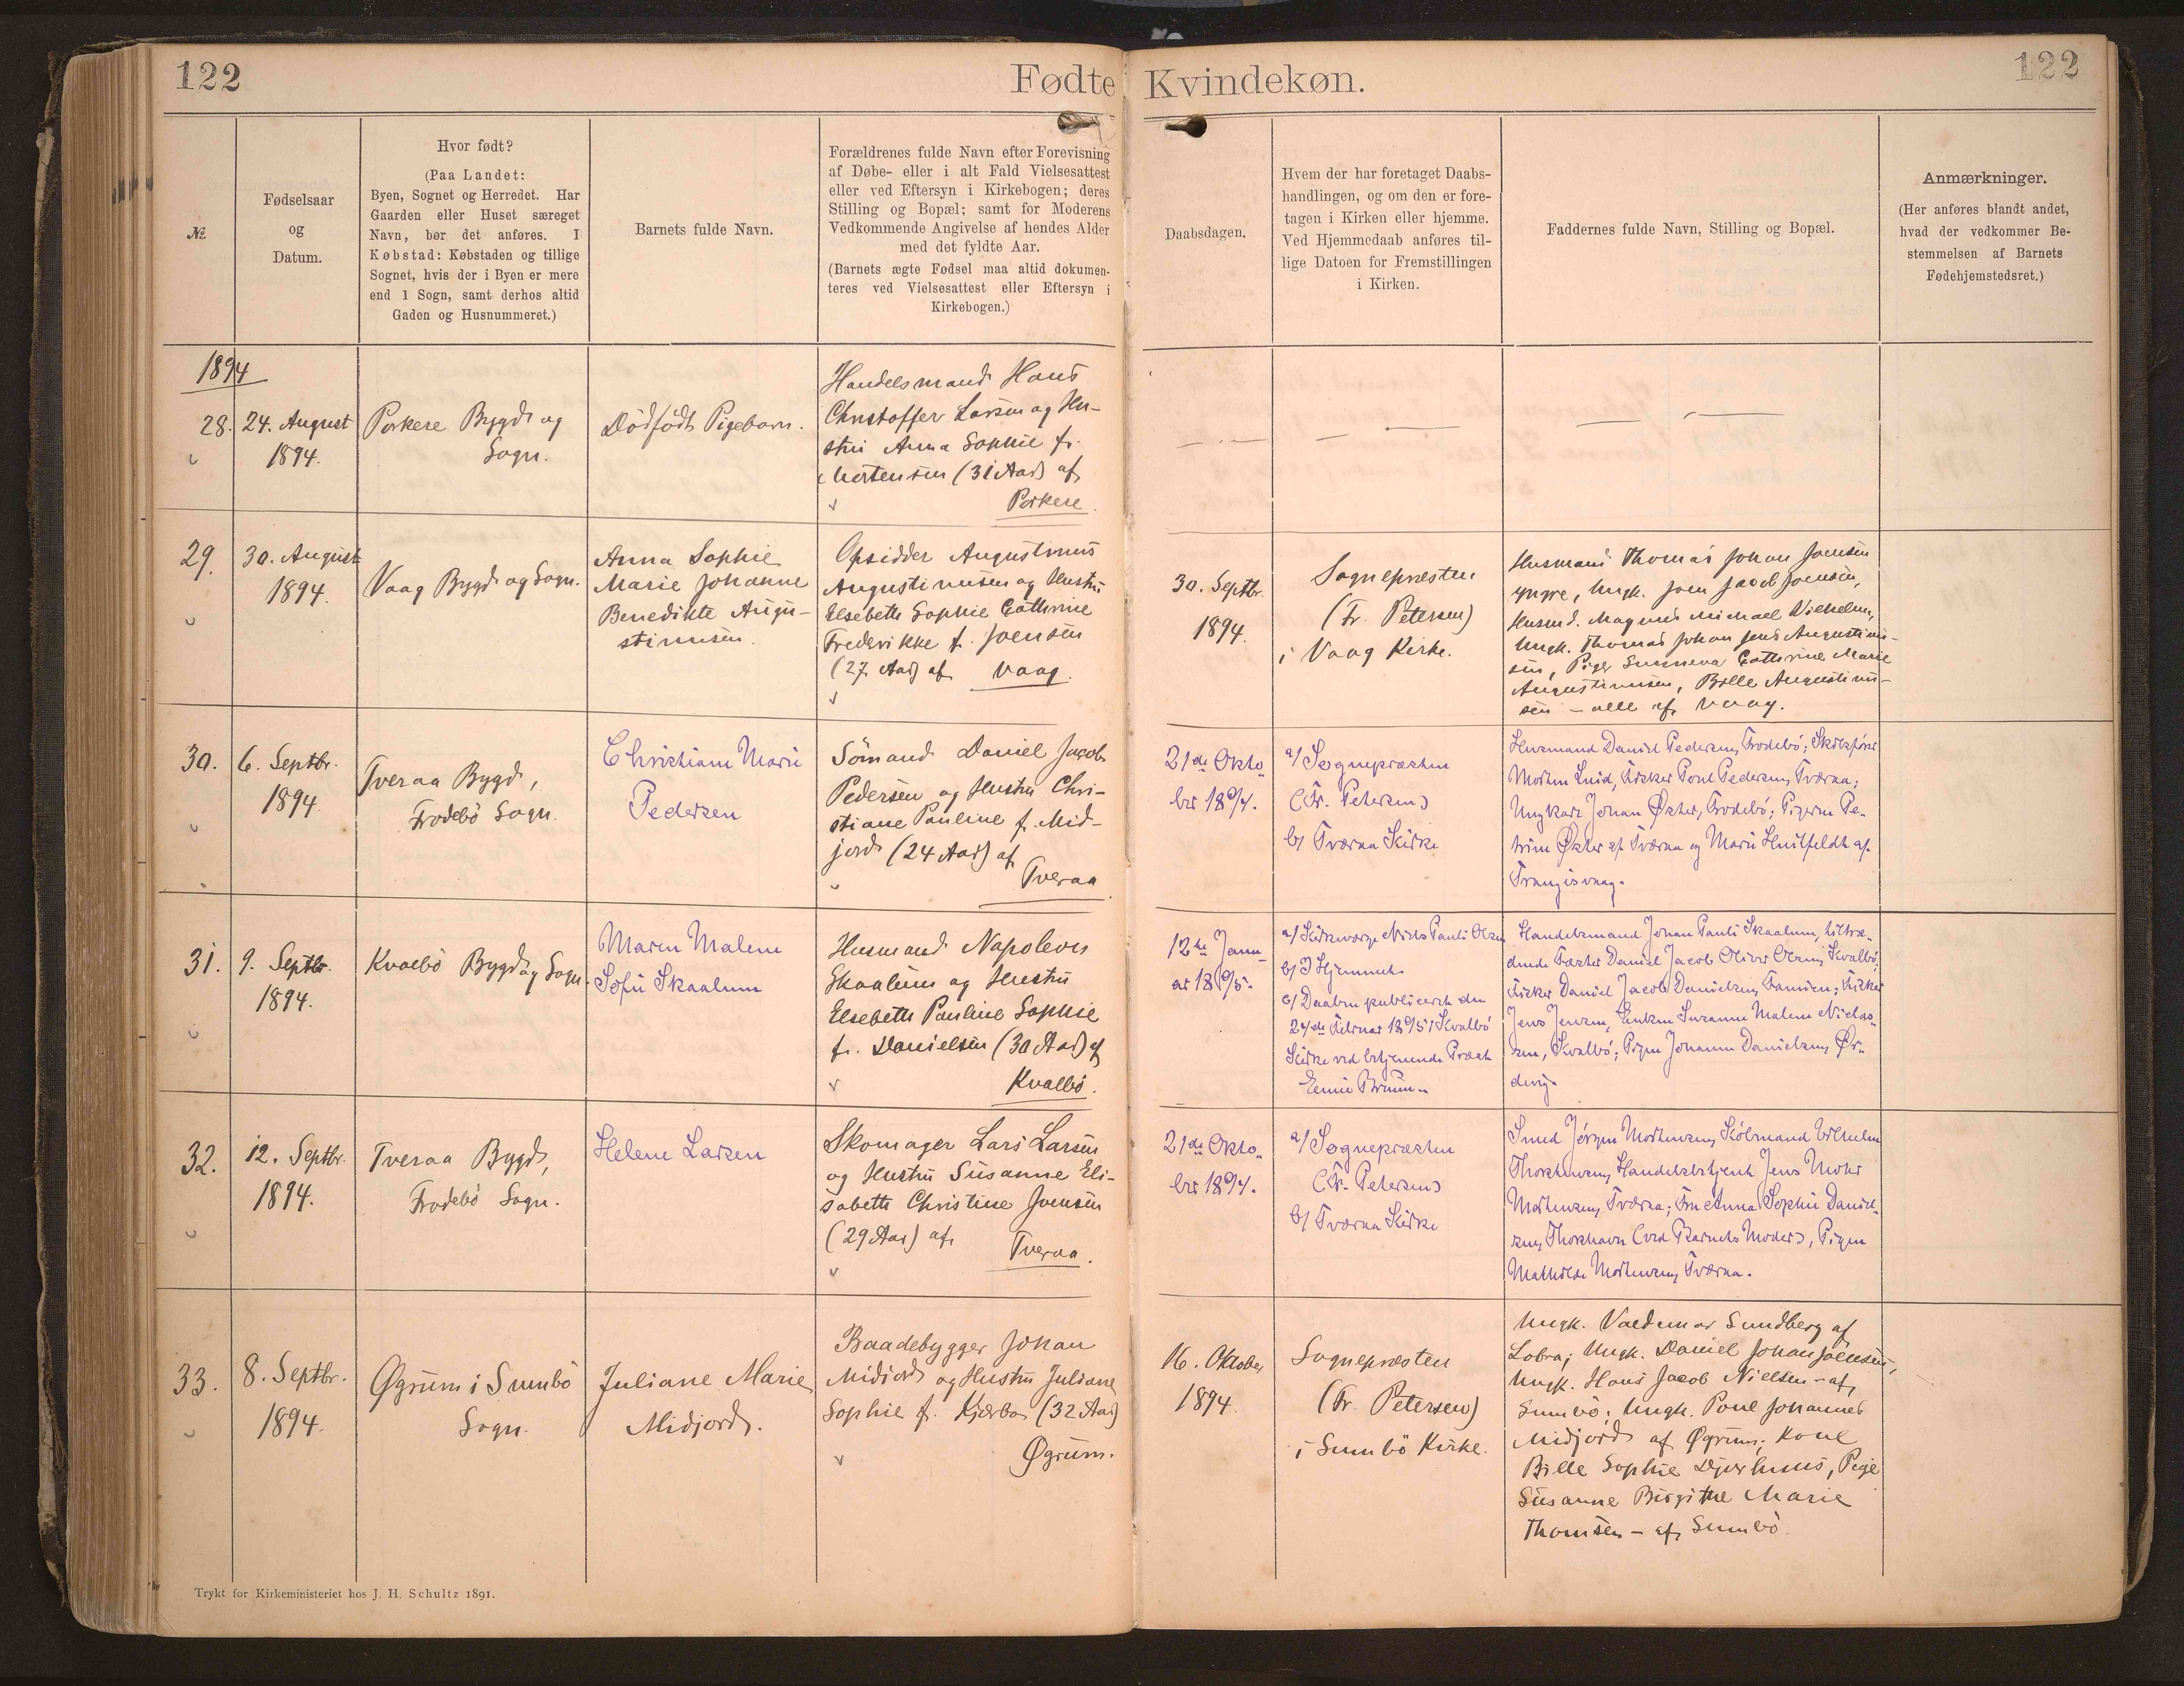 122
Fødte
Kvindekøn.
122
№.
Fødselsaar
og
Datum.
Hvor født?
(Paa Landet:
Byen, Sognet og Herredet. Har
Gaarden eller Huset særeget
Navn, bør det anføres. I
Købstad: Købstaden og tillige
Sognet, hvis der i Byen er mere
end 1 Sogn, samt derhos altid
Gaden og Husnummeret.)
Barnets fulde Navn.
Forældrenes fulde Navn efter Forevisning
af Døbe- eller i alt Fald Vielsesattest
eller ved Eftersyn i Kirkebogen; deres
Stilling og Bopæl; samt for Moderens
Vedkommende Angivelse af hendes Alder
med det fyldte Aar.
(Barnets ægte Fødsel maa altid dokumen-
teres ved Vielsesattest eller Eftersyn i
Kirkebogen.)
Daabsdagen.
Hvem der har foretaget Daabs-
handlingen, og om den er fore-
tagen i Kirken eller hjemme.
Ved Hjemmedaab anføres til-
lige Datoen for Fremstillingen
i Kirken.
Faddernes fulde Navn, Stilling og Bopæl.
Anmærkninger.
(Her anføres blandt andet,
hvad der vedkommer Be-
stemmelsen af Barnets
Fødehjemstedsret.)
1894
28.
24. August
1894.
Porkere Bygd og
Sogn.
Dödfödt Pigebarn.
Handelsmand Hans
Christoffer Larsen og Hu-
stru Anna Sophie f.
Mortensen (31 Aar) af
Porkere.
29.
30. August
1894.
Vaag Bygd og Sogn.
Anna Sophie
Marie Johanne
Benedikte Augu-
stinusen.
Opsidder Augustinus
Augustinusen og Hustru
Elsebeth Sophie Cathrine
Frederikke f. Joensen
(27 Aar) af Vaag.
30. Septbr.
1894.
Sognepræsten
(Fr. Petersen)
i Vaag Kirke.
Husmand Thomas Johan Joensen
yngre, Ungk. Joen Jacob Joensen,
Husmd. Magnus Michael Vilhelm,
Ungk. Thomas Johan Jens Augustinu-
sen, Piger Sunneva Cathrine Marie
Augustinusen, Bille Augustinu-
sen - alle af Vaag.
30.
6. Septbr.
1894.
Tveraa Bygd,
Frodebö Sogn.
Christiane Marie
Pedersen
Sömand Daniel Jacob
Pedersen og Hustru Chri-
stiane Pauline f. Mid-
jord (24 Aar) af
Tveraa.
21de Okto
ber 1894.
a/ Sognepræsten
(Fr. Petersen)
b/ Tværaa Kirke
Husmand Daniel Pedersen, Frodebö; Skibsförer
Morten Luid, Fisker Poul Pedersen, Tværaa;
Ungkarl Johan Øster, Frodebö; Pigerne Pe-
trine Øster af Tværaa og Marie Huitfeldt af
Trangisvaag.
31.
9. Septbr.
1894.
Kvalbö Bygd og Sogn.
Maren Malene
Sofie Skaalum
Husmand Napoleon
Skaalum og Hustru
Elsebeth Pauline Sophie
f. Danielsen (30 Aar) af
Kvalbö.
12te Janu
ar 1895.
a/ Kirkeværge Niels Pauli Olsen
b/ I Hjemmet.
c/ Daaben publiceret den
24de Februar 1895 i Kvalbö
Kirke ved betjenende Præst
Emil Bruun.
Handelsmand Johan Pauli Skaalum, tiltræ-
dende Fæster Daniel Jacob Oliver Olsen, Kvalbö;
Fisker Daniel Jacob Danielsen, Famien; Fisker
Jens Jensen, Enken Susanne Malene Niclas-
sen, Kvalbö; Pigen Johanne Danielsen, Ør-
devig.
32.
12. Septbr.
1894.
Tveraa Bygd,
Frodebö Sogn.
Helene Larsen
Skomager Lars Larsen
og Hustru Susanne Eli-
sabeth Christine Joensen
(29 Aar) af
Tveraa.
21de Okto
ber 1894.
a/ Sognepræsten
(Fr. Petersen)
b/ Tværaa Kirke
Smed Jörgen Mortensen, Köbmand Vilhelm
Thorstensen, Handelsbetjent Jens Mohr
Mortensen, Tværaa; Fru Anna Sophie Daniel-
sen, Thorshavn (ved Barnets Moder), Pigen
Mathilde Mortensen, Tværaa.
33.
8. Septbr.
1894.
Øgrum i Sumbö
Sogn.
Juliane Marie
Midjord.
Baadebygger Johan
Midjord og Hustru Juliane
Sophie f. Kjærbo (32 Aar)
Øgrum.
16. Oktober
1894.
Sognepræsten
(Fr. Petersen)
i Sumbö Kirke.
Ungk. Valdemar Lundberg af
Lobra; Ungk. Daniel Johan Joensen,
Ungk. Hans Jacob Nielsen - af
Sumbö; Ungk. Poul Johannes
Midjord af Øgrum; Kone
Bille Sophie Djurhuus, Pige
Susanne Birgithe Marie
Thomsen - af Sumbö.
Trykt for Kirkeministeriet hos J. H. Schultz 1891.